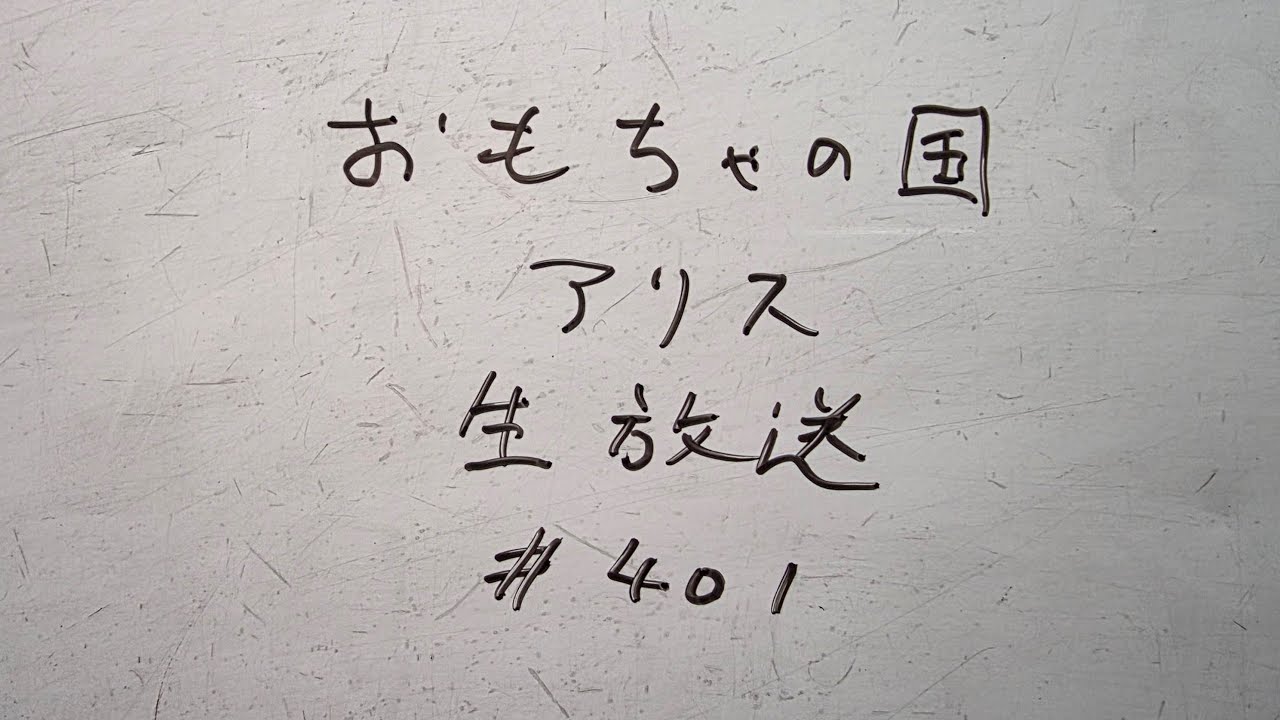 おもちゃの国
アリス
生放送
#401